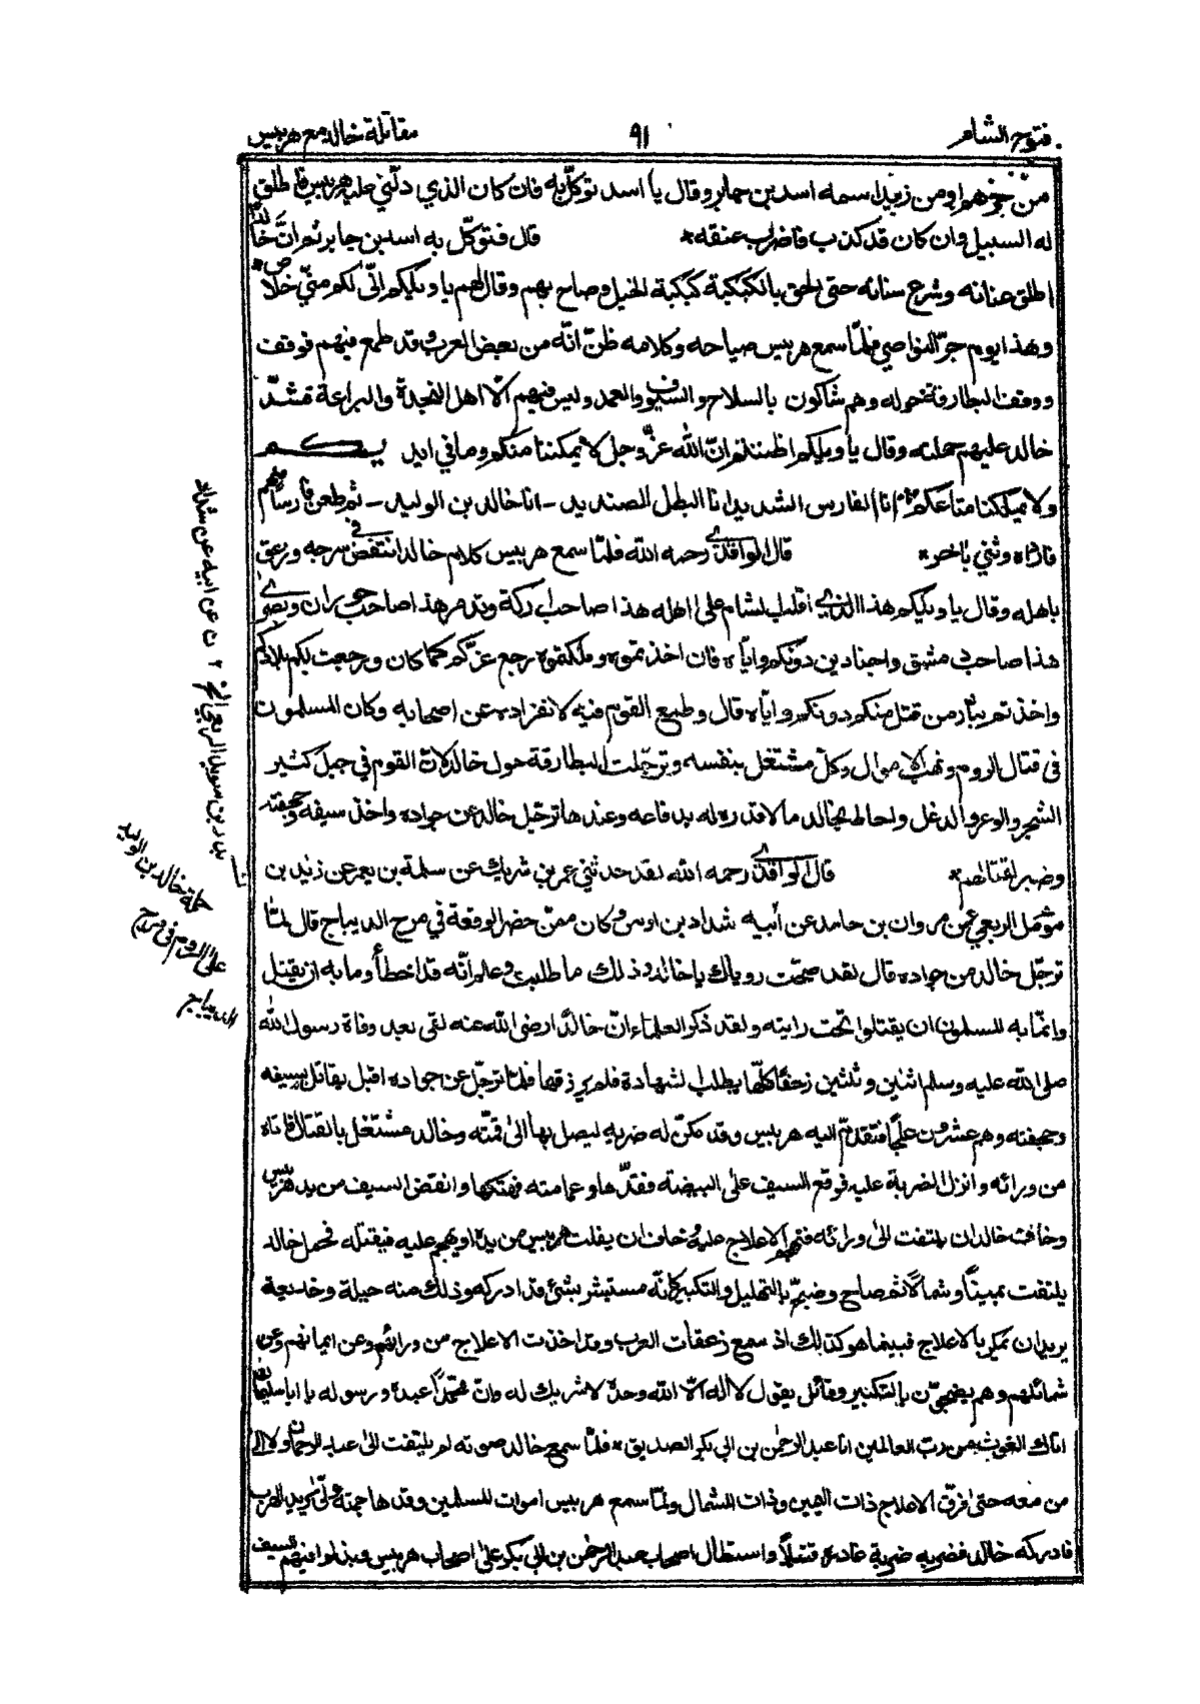 فتوح الشام
٩١
مقاتلة خالد مع هربيس
من خرجهم او من زبيد اسمه اسد بن جابر وقال يا اسد توكّل به فان كان الذي دلّني عليه هربيس فاطلق
له السبيل وان كان قد كذب فاضرب عنقه* قال فتوكّل به اسد بن جابر ثم انّ خالدًا
اطلق عنانه وشرع سنانه حتى لحق بالكبكبة كبكبة الخيل وصاح بهم وقال لهم يا ويلكم انّى لكم منّي خلاص*
وهذا يوم جزّ النواصي فلمّا سمع هربيس صياحه وكلامه ظنّ انّه من بعض العرب وقد طمع فيهم فوقف
ووقفت البطارقة نحوله وهم شاكون بالسلاح والسيوف والعمد وليس فيهم الّا اهل النجدة والبراعة فشدّ
خالد عليهم حملته وقال يا ويلكم اظننتم انّ الله عزّ وجل لا يمكننا منكم وما في ايديكم
ولا يملكنا متاعكم انا الفارس الشديد انا البطل الصنديد - انا خالد بن الوليد - ثم طعن فارسًا منهم
فارداه وثني بآخر* قال الواقدي رحمه الله فلمّا سمع هربيس كلام خالد انتفض في سرجه وزعق
باهله وقال يا ويلكم هذا الذي اقلب الشام على اهله هذا صاحب اركة وتدمر هذا صاحب حوران وبصرى
هذا صاحب دمشق واجنادين دونكم وايّاه فان اخذتموه وملكتموه رجع عزّكم كما كان ورجعت لكم بلادكم
واخذتم بثار من قتل منكم دونكم وايّاه قال وطمع القوم فيه لانفراده عن اصحابه وكان المسلمون
في قتال الروم ونهب الاموال وكلّ مشتغل بنفسه وترجّلت البطارقة حول خالد لانّ القوم في جبل كثير
الشجر والوعر والدغل واحاط بخالد ما لا قدره له بدفاعه وعندها ترجّل خالد عن جواده واخذ سيفه وحجفته
وصبر لقتالهم* قال الواقدي رحمه الله لقد حدثني عمر بن شريك عن سلمة بن يعمر عن زيد بن
مؤمل الربعي عن مروان بن حامد عن أبيه شداد بن اوس وكان ممّن حضر الوقعة في مرج الديباج قال لمّا
ترجّل خالد من جواده قال لقد صحّت روياك يا خالد وذلك ما طلبت وعلم انّه قد اخطأ وما به ان يقتل
وانّما به للمسلمون ان يقتلوا تحت رايته ولقد ذكر العلماء انّ خالدًا رضى الله عنه لقى بعد وفاة رسول الله
صلى الله عليه وسلم اثنين وثلثين زحفًا كلّها يطلب الشهادة فلم يرزقها فلمّا ترجّل عن جواده اقبل يقاتل بسيفه
وحجفته وهم عشرون علجًا فتقدّم اليه هربيس وقد مكّن له ضربه ليصل بها الى قمّته وخالد مشتغل بالقتال فاتاه
من ورائه وانزل الضربة عليه فوقع السيف على البيضة فقدّها وعمامته فهتكها وانقض السيف من يد هربيس
وخافت خالد ان يلتفت الى ورائه فتهجم الاعلاج عليه وخاف ان يفلت هربيس من يده او يهجم عليه فيقتله فجعل خالد
يلتفت يمينًا وشمالًا ثم صاح وضجّ بالتهليل والتكبير كانّه مستبشر بشئ قد ادركه وذلك منه حيلة وخديعة
يريد ان يمكر بالاعلاج فبينما هو كذلك اذ سمع زعقات العرب وقد اخذت الاعلاج من ورائهم وعن ايمانهم وعن
شمائلهم وهم يضجّون بالتكبير وقائل يقول لا اله الّا الله وحدهُ لا شريك له وانّ محمّدًا عبدهُ ورسوله يا ابا سليمان قد
اتاك الغوث من ربّ العالمين انا عبد الرحمٰن بن ابي بكر الصديق* فلمّا سمع خالد صوته لم يلتفت الى عبد الرحمان ولا الى
من معه حتى افرق الاعلاج ذات اليمين وذات الشمال ولمّا سمع هربيس اصوات المسلمين وقد هاجمته ولّى يريد الهرب
فادركه خالد فضربه ضربة عادة قتيلًا واستطال اصحاب عبد الرحمٰن بن ابي بكر على اصحاب هربيس وبذلوا فيهم السيف
بدر بن سويل الربعي الخ ٢ ن عن ابيه عن شداد
حملة خالد بن الوليد
على الروم في مرج
الديباج